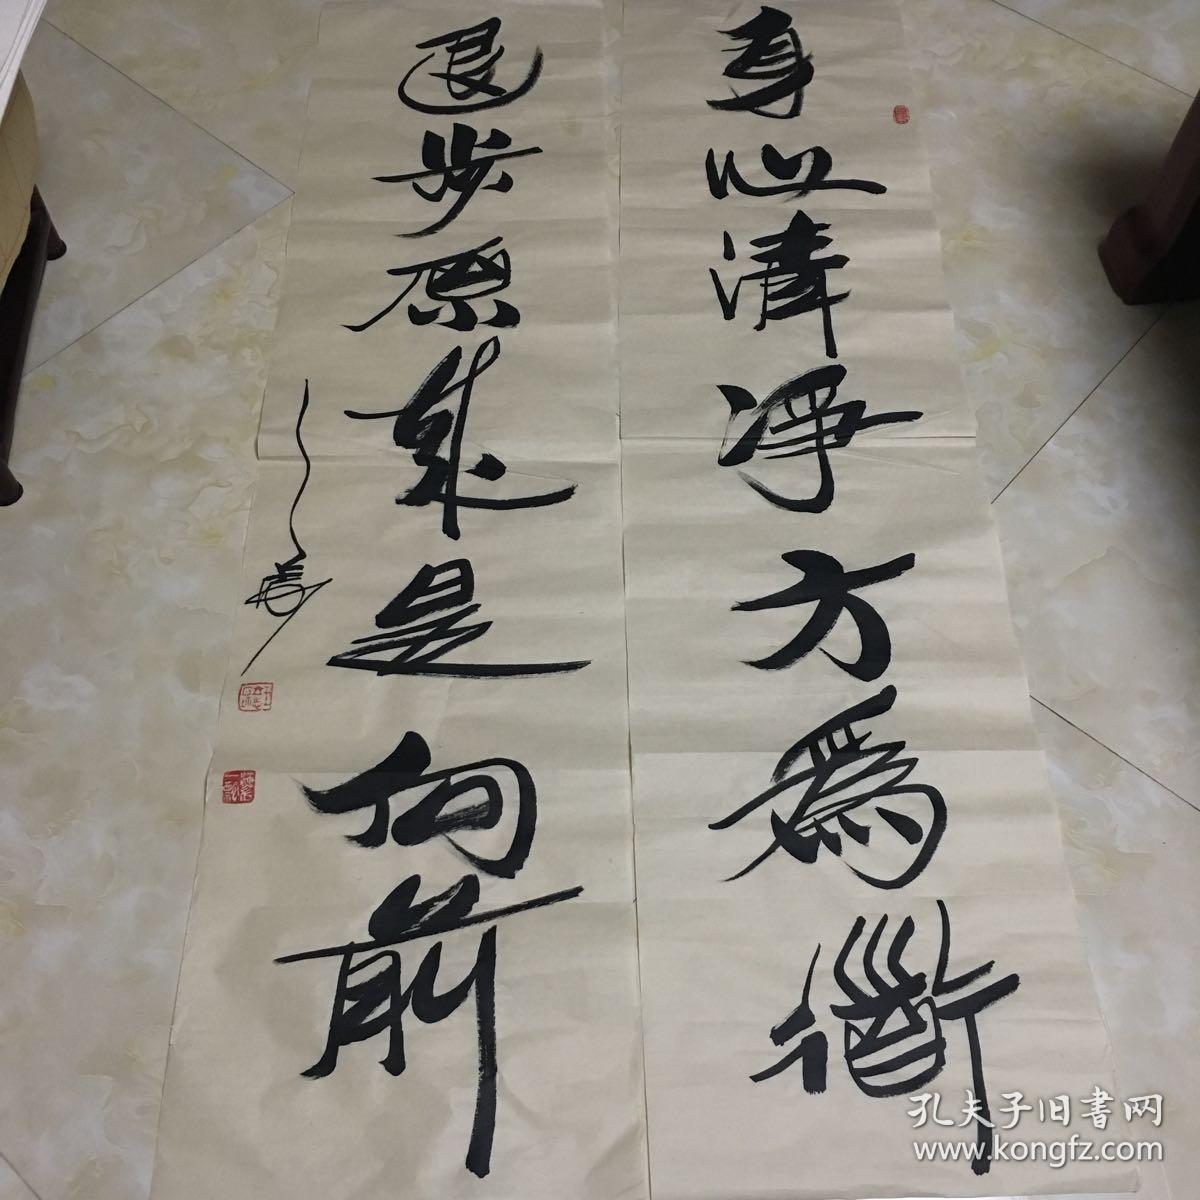 身心清净方為衟
退步原来是向前
孔夫子旧書网
www.kongfz.com